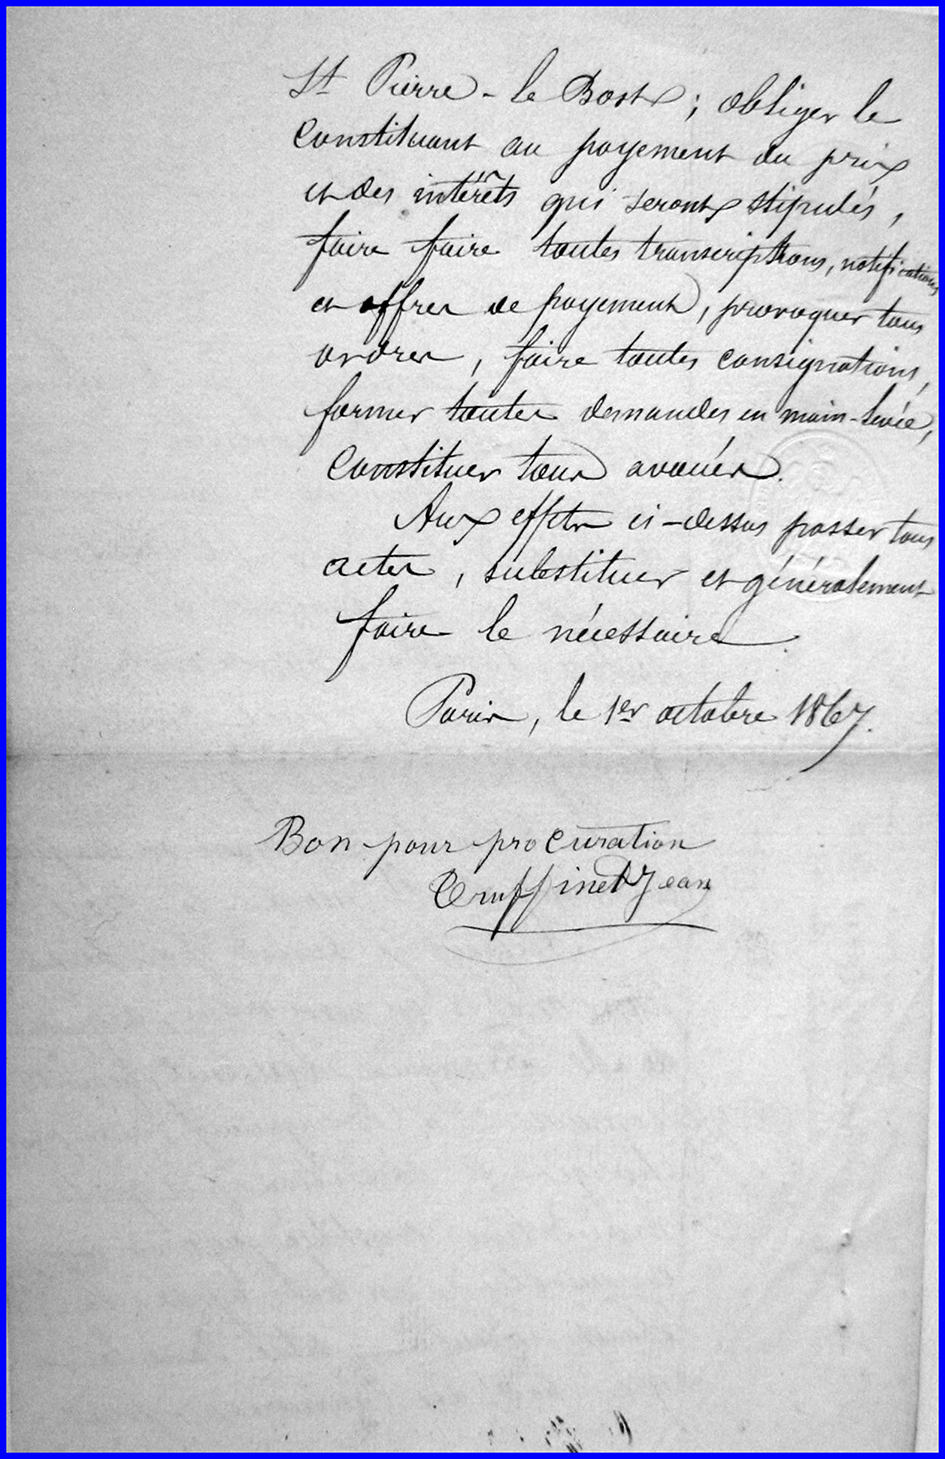 St Pierre - le Bost ; obliger le
constituant au payement du prix
et des intérêts qui seront stipulés,
faire faire toutes transcriptions, notifications
et offres de payement, provoquer tous
ordres, faire toutes consignations,
former toutes demandes en main-levée,
constituer tous avoués.
Aux effets ci-dessus passer tous
actes, substituer et généralement
faire le nécessaire.
Paris, le 1er octobre 1867.
Bon pour procuration
Truffinet Jean